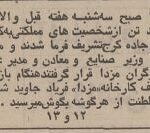 صبح سه‌شنبه هفته قبل والا
تن ازشخصیت های مملکتی‌به‌ک
جاده کرج‌تشریف فرما شدند و م
وزیر صنایع و معادن و مدیر ع
گران مزدا قرار گرفتندهنگام باز
ف کارخانه«مزدا» فریاد جاوید شا
طنت از هرگوشه بگوش‌میرسید .
۱۲ و ۱۳